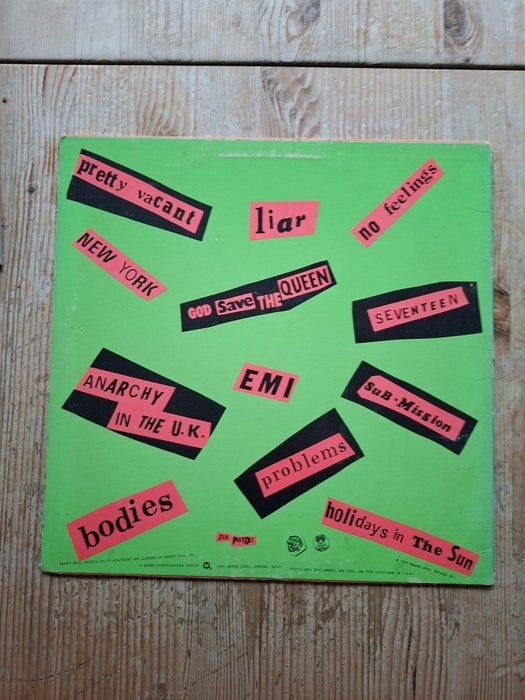 pretty vacant
liar
no feelings
NEW YORK
GOD Save THE QUEEN
SEVENTEEN
ANARCHY
IN THE U.K.
EMI
SuB·Mission
problems
bodies
SEX PISTOLS
holidays in The Sun